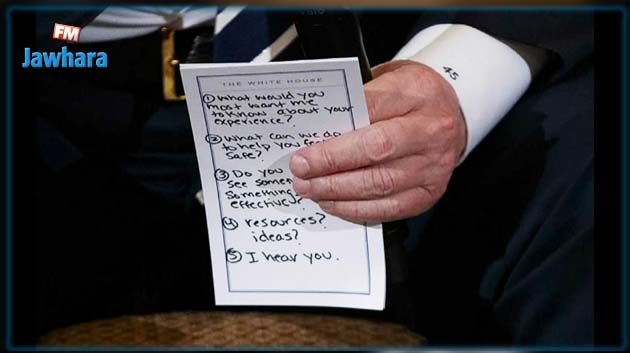 FM
Jawhara
45
THE WHITE HOUSE
① What would you
most want me
to know about your
experience?
② What can we do
to help you feel
safe?
③ Do you
see
effective?
④ resources?
ideas?
⑤ I hear you.